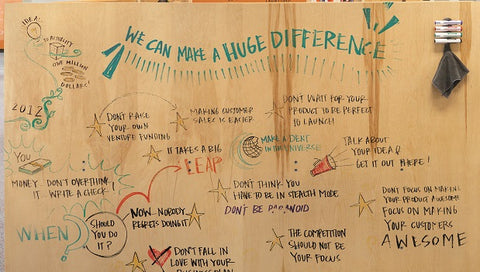 IDEA:
TO ACTUALITY
ONE MILLION
DOLLARS!
WE CAN MAKE A HUGE DIFFERENCE
2012
DON'T RAISE
YOUR OWN
VENTURE FUNDING
MAKING CUSTOMER
SALES IS EASIER
DON'T WAIT FOR YOUR
PRODUCT TO BE PERFECT
TO LAUNCH!
IT TAKES A BIG
LEAP
MAKE A DENT
IN THE UNIVERSE!
TALK ABOUT
YOUR IDEA &
GET IT OUT THERE!
YOU
MONEY: DON'T OVERTHINK
IT. WRITE A CHECK!
DON'T THINK YOU
HAVE TO BE IN STEALTH MODE
DON'T BE PARANOID
DON'T FOCUS ON MAKING
YOUR PRODUCT AWESOME
FOCUS ON MAKING
YOUR CUSTOMERS
AWESOME
WHEN?
SHOULD
YOU DO
IT?
NOW. NOBODY
REGRETS DOING IT
THE COMPETITION
SHOULD NOT BE
YOUR FOCUS
DON'T FALL IN
LOVE WITH YOUR
BUSINESS PLAN